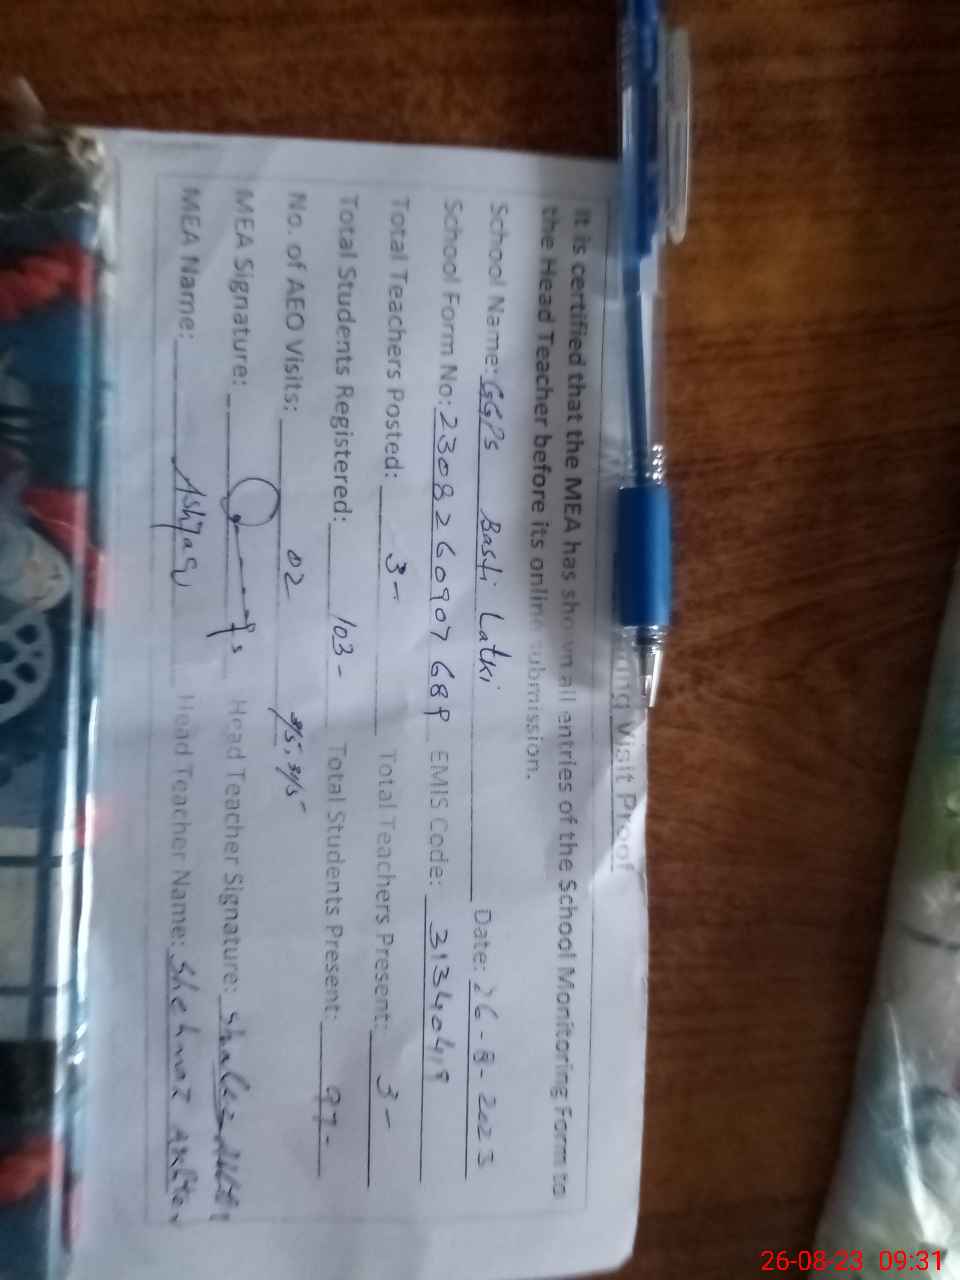 Visit Proof
It is certified that the MEA has shown all entries of the School Monitoring Form to
the Head Teacher before its online submission.
School Name: GGPS Basti Latki Date: 26-8-2023
School Form No: EMIS Code: 31340418
Total Teachers Posted: 3- Total Teachers Present: 3-
Total Students Registered: 103- Total Students Present: 97-
No. of AEO Visits: 02
MEA Signature: Head Teacher Signature:
MEA Name: Head Teacher Name: Shehnaz Akhter
26-08-23 09:31